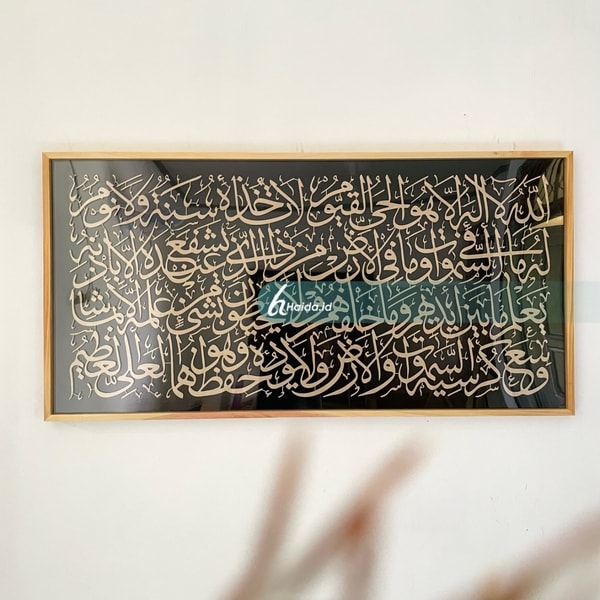 الله لا إله إلا هو الحي القيوم لا تأخذه سنة ولا نوم
له ما في السموات وما في الأرض من ذا الذي يشفع عنده إلا بإذنه
يعلم ما بين أيديهم وما خلفهم ولا يحيطون بشيء من علمه إلا بما شاء
وسع كرسيه السموات والأرض ولا يؤده حفظهما وهو العلي العظيم
Haida.id